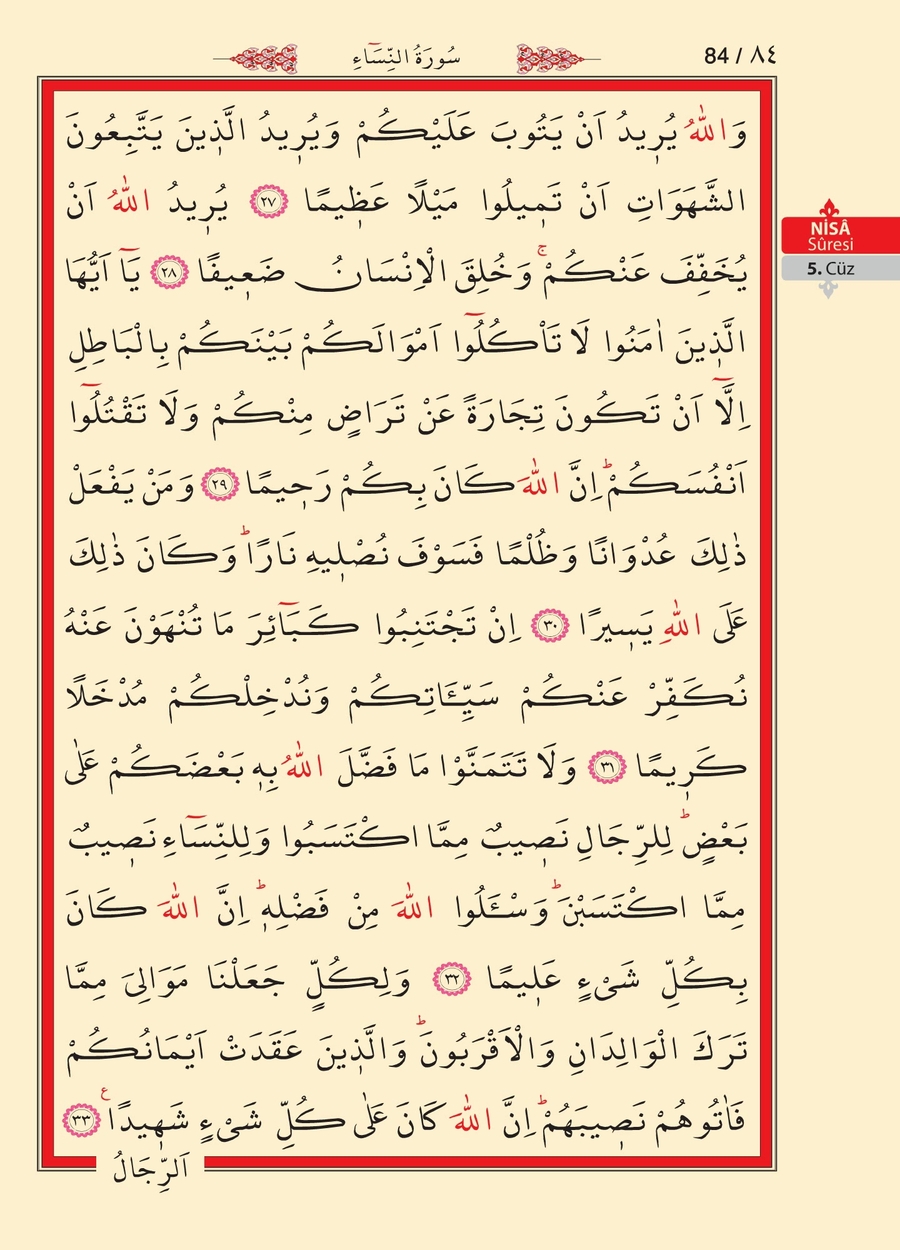 84 / ٨٤
سُورَةُ النِّسَٓاءِ
وَاللّٰهُ يُر۪يدُ اَنْ يَتُوبَ عَلَيْكُمْ وَيُر۪يدُ الَّذ۪ينَ يَتَّبِعُونَ
الشَّهَوَاتِ اَنْ تَم۪يلُوا مَيْلًا عَظ۪يمًا ﴿٢٧﴾ يُر۪يدُ اللّٰهُ اَنْ
يُخَفِّفَ عَنْكُمْۚ وَخُلِقَ الْاِنْسَانُ ضَع۪يفًا ﴿٢٨﴾ يَٓا اَيُّهَا
الَّذ۪ينَ اٰمَنُوا لَا تَأْكُلُٓوا اَمْوَالَكُمْ بَيْنَكُمْ بِالْبَاطِلِ
اِلَّٓا اَنْ تَكُونَ تِجَارَةً عَنْ تَرَاضٍ مِنْكُمْ وَلَا تَقْتُلُٓوا
اَنْفُسَكُمْۜ اِنَّ اللّٰهَ كَانَ بِكُمْ رَح۪يمًا ﴿٢٩﴾ وَمَنْ يَفْعَلْ
ذٰلِكَ عُدْوَانًا وَظُلْمًا فَسَوْفَ نُصْل۪يهِ نَارًاۜ وَكَانَ ذٰلِكَ
عَلَى اللّٰهِ يَس۪يرًا ﴿٣٠﴾ اِنْ تَجْتَنِبُوا كَبَٓائِرَ مَا تُنْهَوْنَ عَنْهُ
نُكَفِّرْ عَنْكُمْ سَيِّـَٔاتِكُمْ وَنُدْخِلْكُمْ مُدْخَلًا
كَر۪يمًا ﴿٣١﴾ وَلَا تَتَمَنَّوْا مَا فَضَّلَ اللّٰهُ بِه۪ بَعْضَكُمْ عَلٰى
بَعْضٍۜ لِلرِّجَالِ نَص۪يبٌ مِمَّا اكْتَسَبُوا وَلِلنِّسَٓاءِ نَص۪يبٌ
مِمَّا اكْتَسَبْنَۜ وَسْـَٔلُوا اللّٰهَ مِنْ فَضْلِه۪ۜ اِنَّ اللّٰهَ كَانَ
بِكُلِّ شَيْءٍ عَل۪يمًا ﴿٣٢﴾ وَلِكُلٍّ جَعَلْنَا مَوَالِيَ مِمَّا
تَرَكَ الْوَالِدَانِ وَالْاَقْرَبُونَۜ وَالَّذ۪ينَ عَقَدَتْ اَيْمَانُكُمْ
فَاٰتُوهُمْ نَص۪يبَهُمْۜ اِنَّ اللّٰهَ كَانَ عَلٰى كُلِّ شَيْءٍ شَه۪يدًا ع ﴿٣٣﴾
اَلرِّجَالُ
NİSÂ
Sûresi
5. Cüz